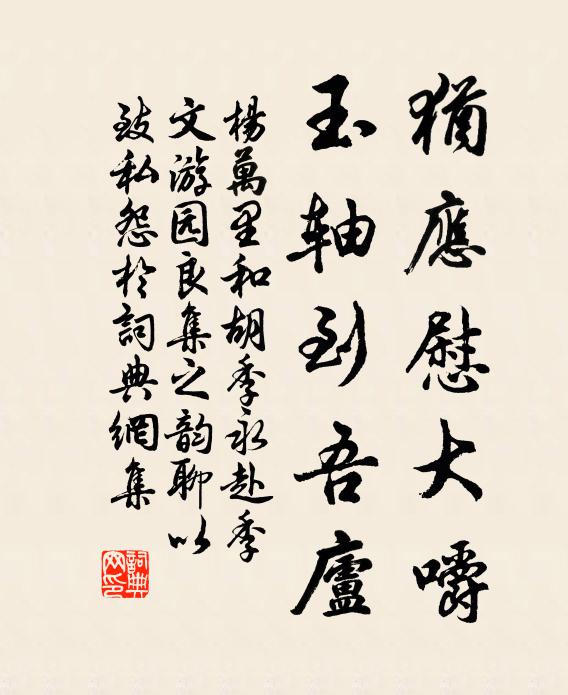 猶應慰大嚼
玉轴到吾廬
楊萬里和胡季永赴季
文游园良集之韵聊以
致私怨於詞典網集
詞典网印